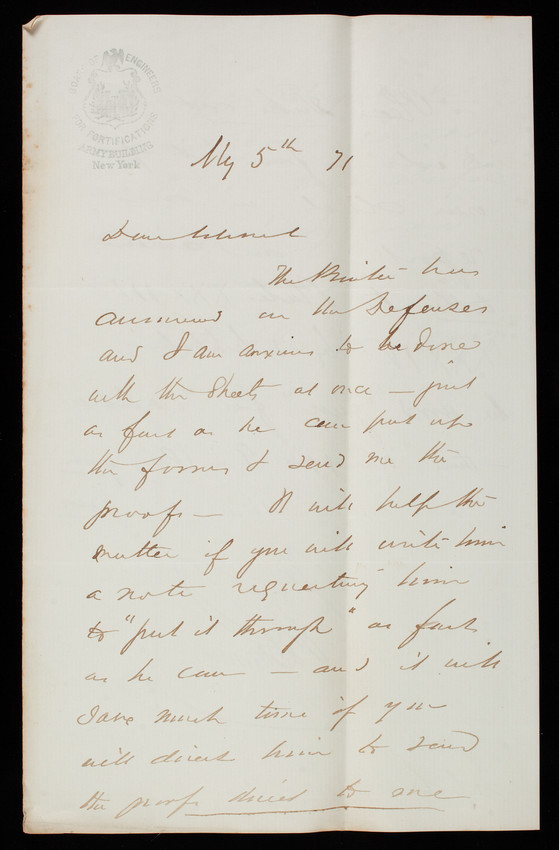 BOARD OF ENGINEERS
FOR FORTIFICATIONS
ARMY BUILDING
New York
My 5th 71
Dear Colonel
The Printer has
commenced on the Defenses
and I am anxious to be done
with the sheets at once – just
as fast as he can put up
the forms & send me the
proofs – It will help the
matter if you will write him
a note requesting him
to "put it through" as fast
as he can – and it will
save much time if you
will direct him to send
the proofs direct to me.